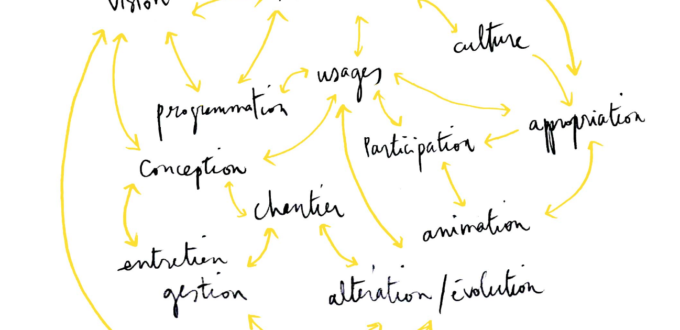 vision
culture
usages
programmation
appropriation
Participation
Conception
chantier
animation
entretien
gestion
altération / évolution